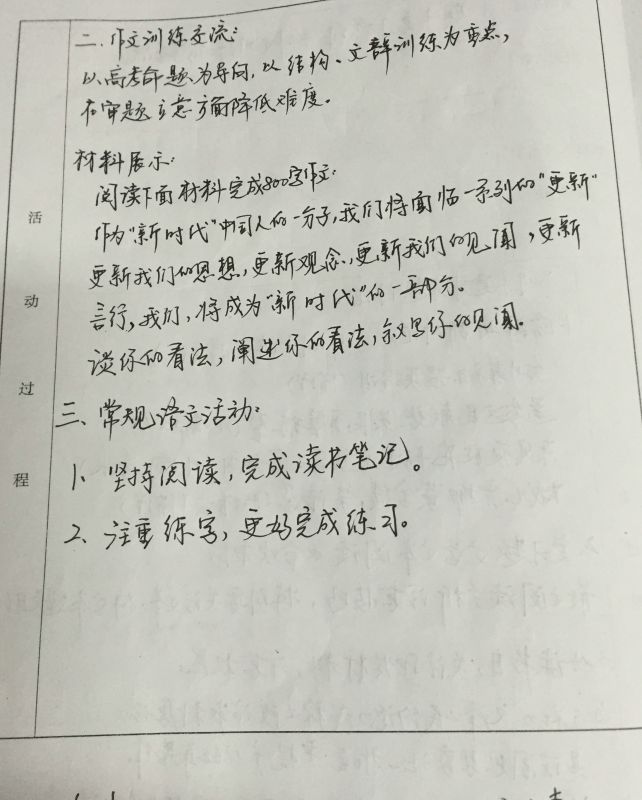 二、作文训练交流：
以高考命题为导向，以结构、文辞训练为重点，
在审题立意方面降低难度。
材料展示：
阅读下面材料完成800字作文：
作为"新时代"中国人的一分子，我们将面临一系列的"更新"
更新我们的思想，更新观念，更新我们的见闻，更新
言行，我们，将成为"新时代"的一部分。
谈你的看法，阐述你的看法，叙写你的见闻。
三、常规语文活动：
1、坚持阅读，完成读书笔记。
2、注重练字，更好完成练习。
活
动
过
程